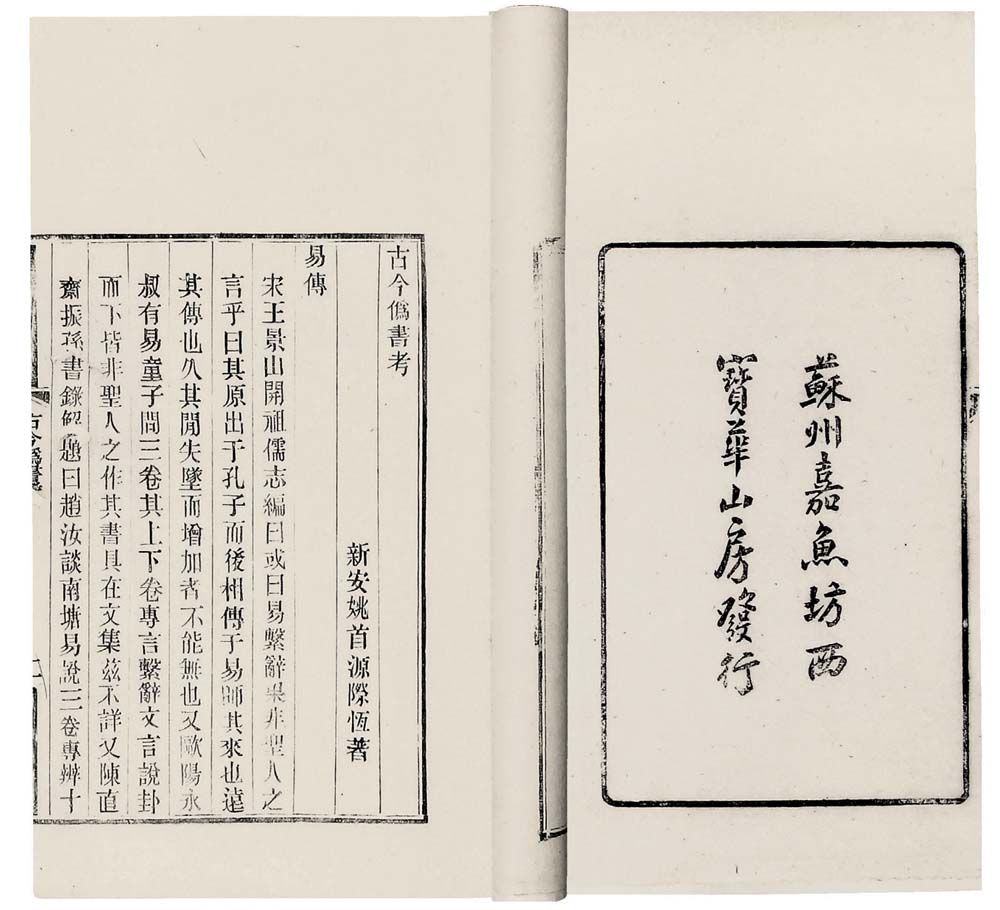 蘇州嘉魚坊西
寶華山房發行
古今僞書考
新安姚首源際恆著
易傳
宋王景山開祖儒志編曰或曰易繫辭果非聖人之
言乎曰其原出于孔子而後相傳于易師其來也遠
其傳也久其閒失墜而增加者不能無也又歐陽永
叔有易童子問三卷其上下卷專言繫辭文言說卦
而下皆非聖人之作其書具在文集茲不詳又陳直
齋振孫書錄解題曰趙汝談南塘易說三卷專辨十
古今僞書考